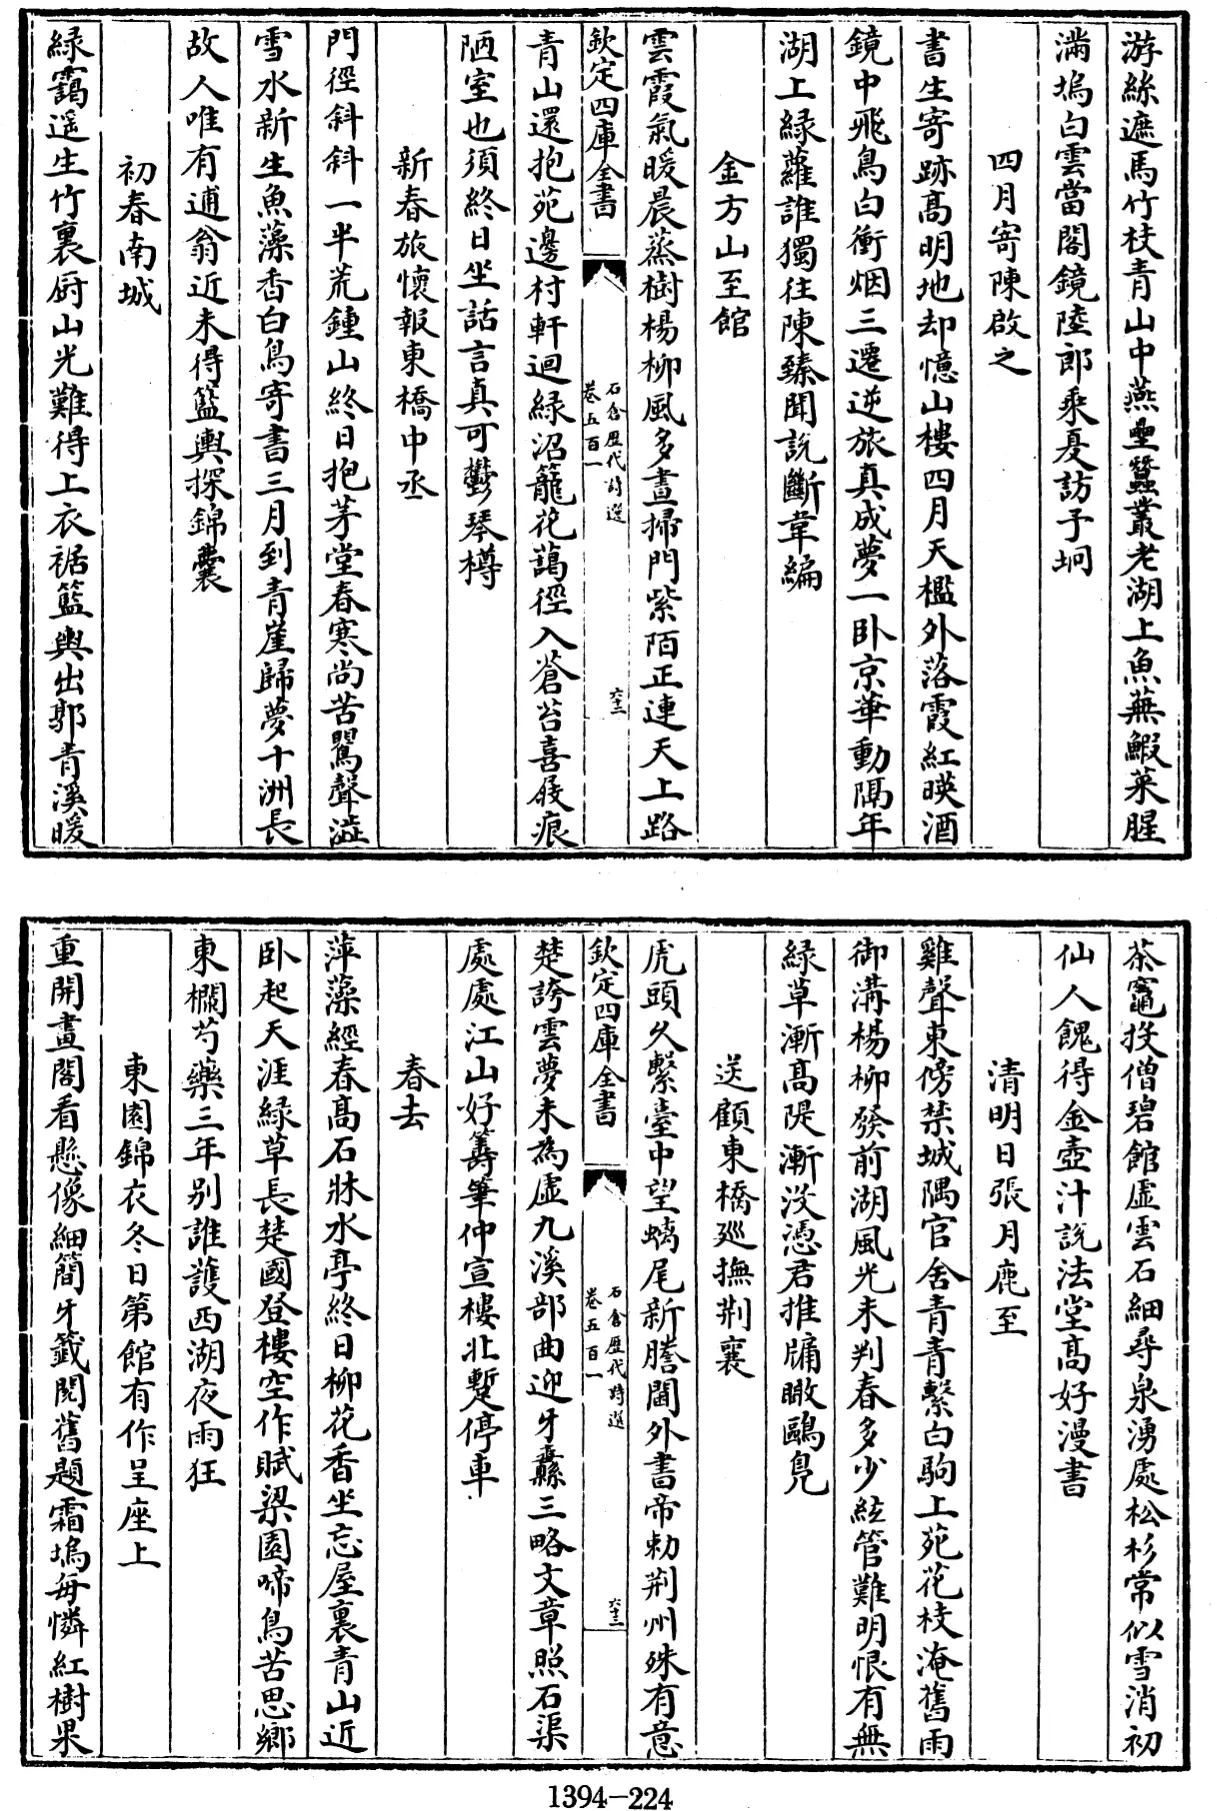 游絲遮馬竹枝青山中燕壘蠶叢老湖上魚蕪鰕菜腥
滿塢白雲當閣鏡陸郎乘夏訪子坰
四月寄陳啟之
書生寄跡高明地却憶山樓四月天檻外落霞紅暎酒
鏡中飛鳥白衝烟三遷逆旅真成夢一卧京華動隔年
湖上緑蘿誰獨往陳臻聞說斷韋編
金方山至館
雲霞氣暖晨蒸樹楊柳風多晝掃門紫陌正連天上路
欽定四庫全書
石倉歷代詩選
卷五百一
六十二
青山還抱苑邊村軒迴緑沼籠花藹徑入蒼苔喜屐痕
陋室也須終日坐話言真可欝琴樽
新春旅懷報東橋中丞
門徑斜斜一半荒鍾山終日抱茅堂春寒尚苦鸎聲澁
雪水新生魚藻香白鳥寄書三月到青崖歸夢十洲長
故人唯有逋翁近未得籃輿探錦囊
初春南城
緑靄遥生竹裏厨山光難得上衣裾籃輿出郭青溪暖
茶竈投僧碧館虛雲石細尋泉湧處松杉常似雪消初
仙人餽得金壺汁說法堂高好漫書
清明日張月鹿至
雞聲東傍禁城隅官舍青青繫白駒上苑花枝淹舊雨
御溝楊柳發前湖風光未判春多少絃管難明恨有無
緑草漸高隄漸没憑君推牖瞰鷗鳬
送顧東橋廵撫荆襄
虎頭久繫臺中望螭尾新謄閫外書帝勑荆州殊有意
欽定四庫全書
石倉歷代詩選
卷五百一
六十三
楚誇雲夢未為虛九溪部曲迎牙纛三略文章照石渠
處處江山好籌筆仲宣樓北蹔停車
春去
萍藻經春高石牀水亭終日柳花香坐忘屋裏青山近
卧起天涯緑草長楚國登樓空作賦梁園啼鳥苦思鄉
東欄芍藥三年别誰護西湖夜雨狂
東園錦衣冬日第館有作呈座上
重開畫閣看懸像細簡牙籤閱舊題霜塢每憐紅樹果
1394-224